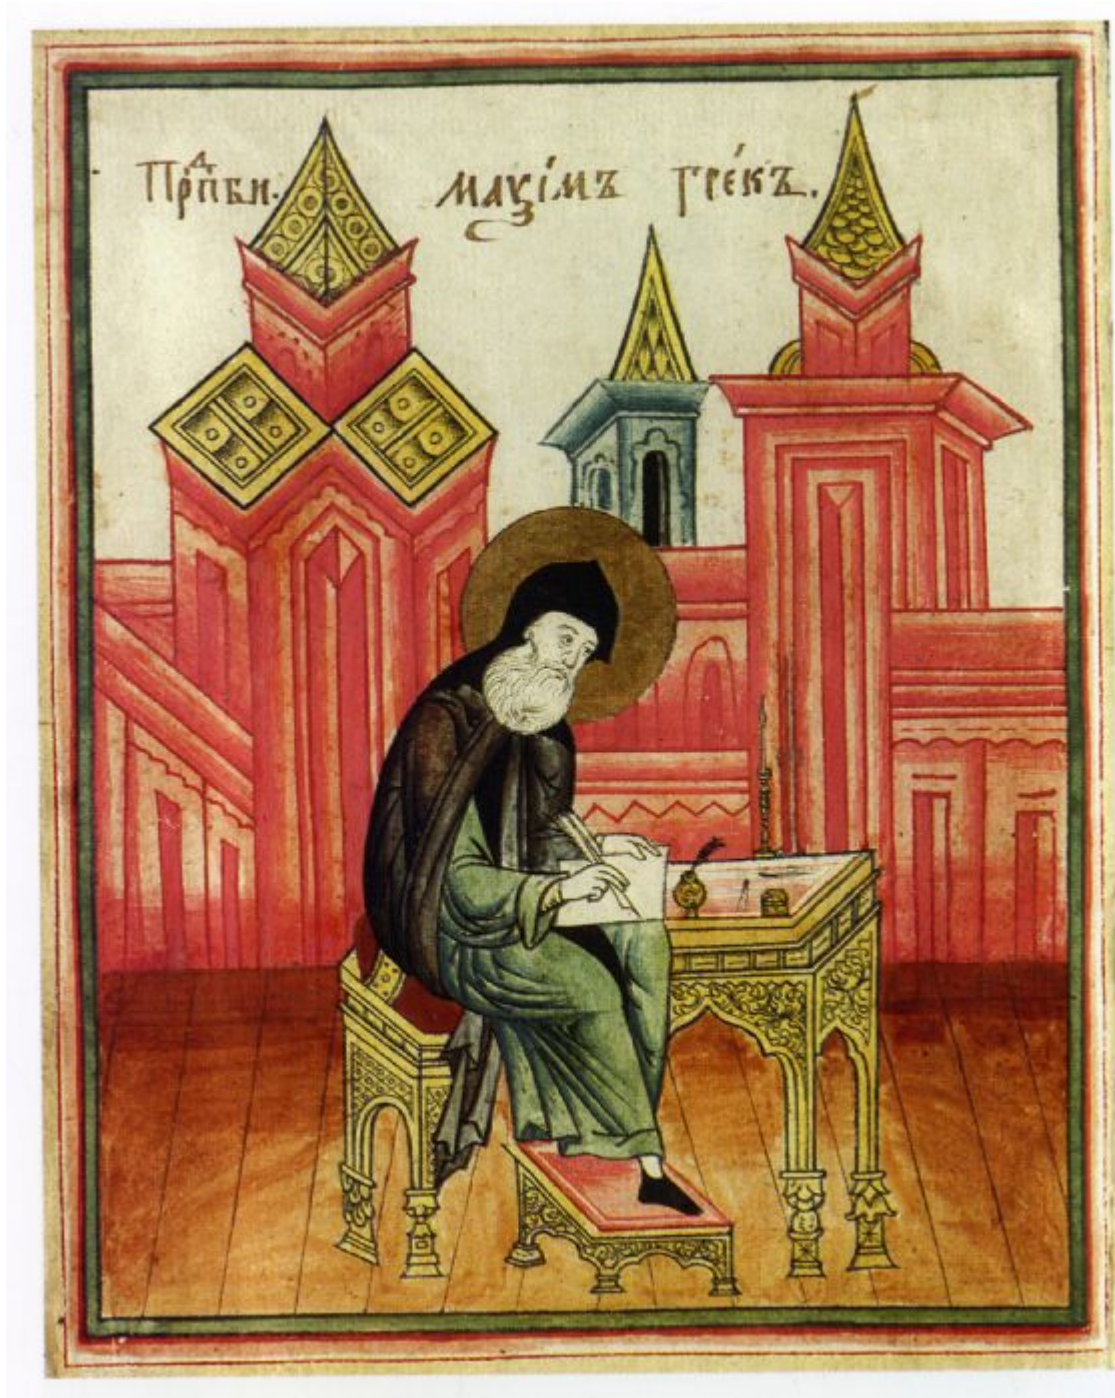 Прпдбн. маѯі́мъ гре́къ.